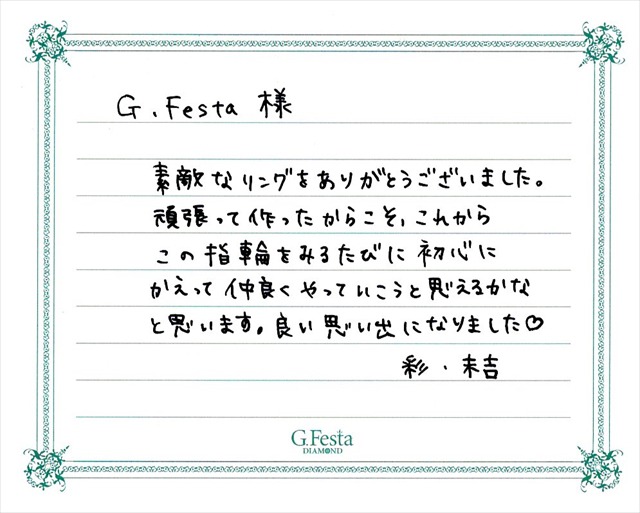 G.Festa 様
素敵なリングをありがとうございました。
頑張って作ったからこそ、これから
この指輪をみるたびに初心に
かえって仲良くやっていこうと思えるかな
と思います。良い思い出になりました♡
彩・未吉
G.Festa
DIAMOND